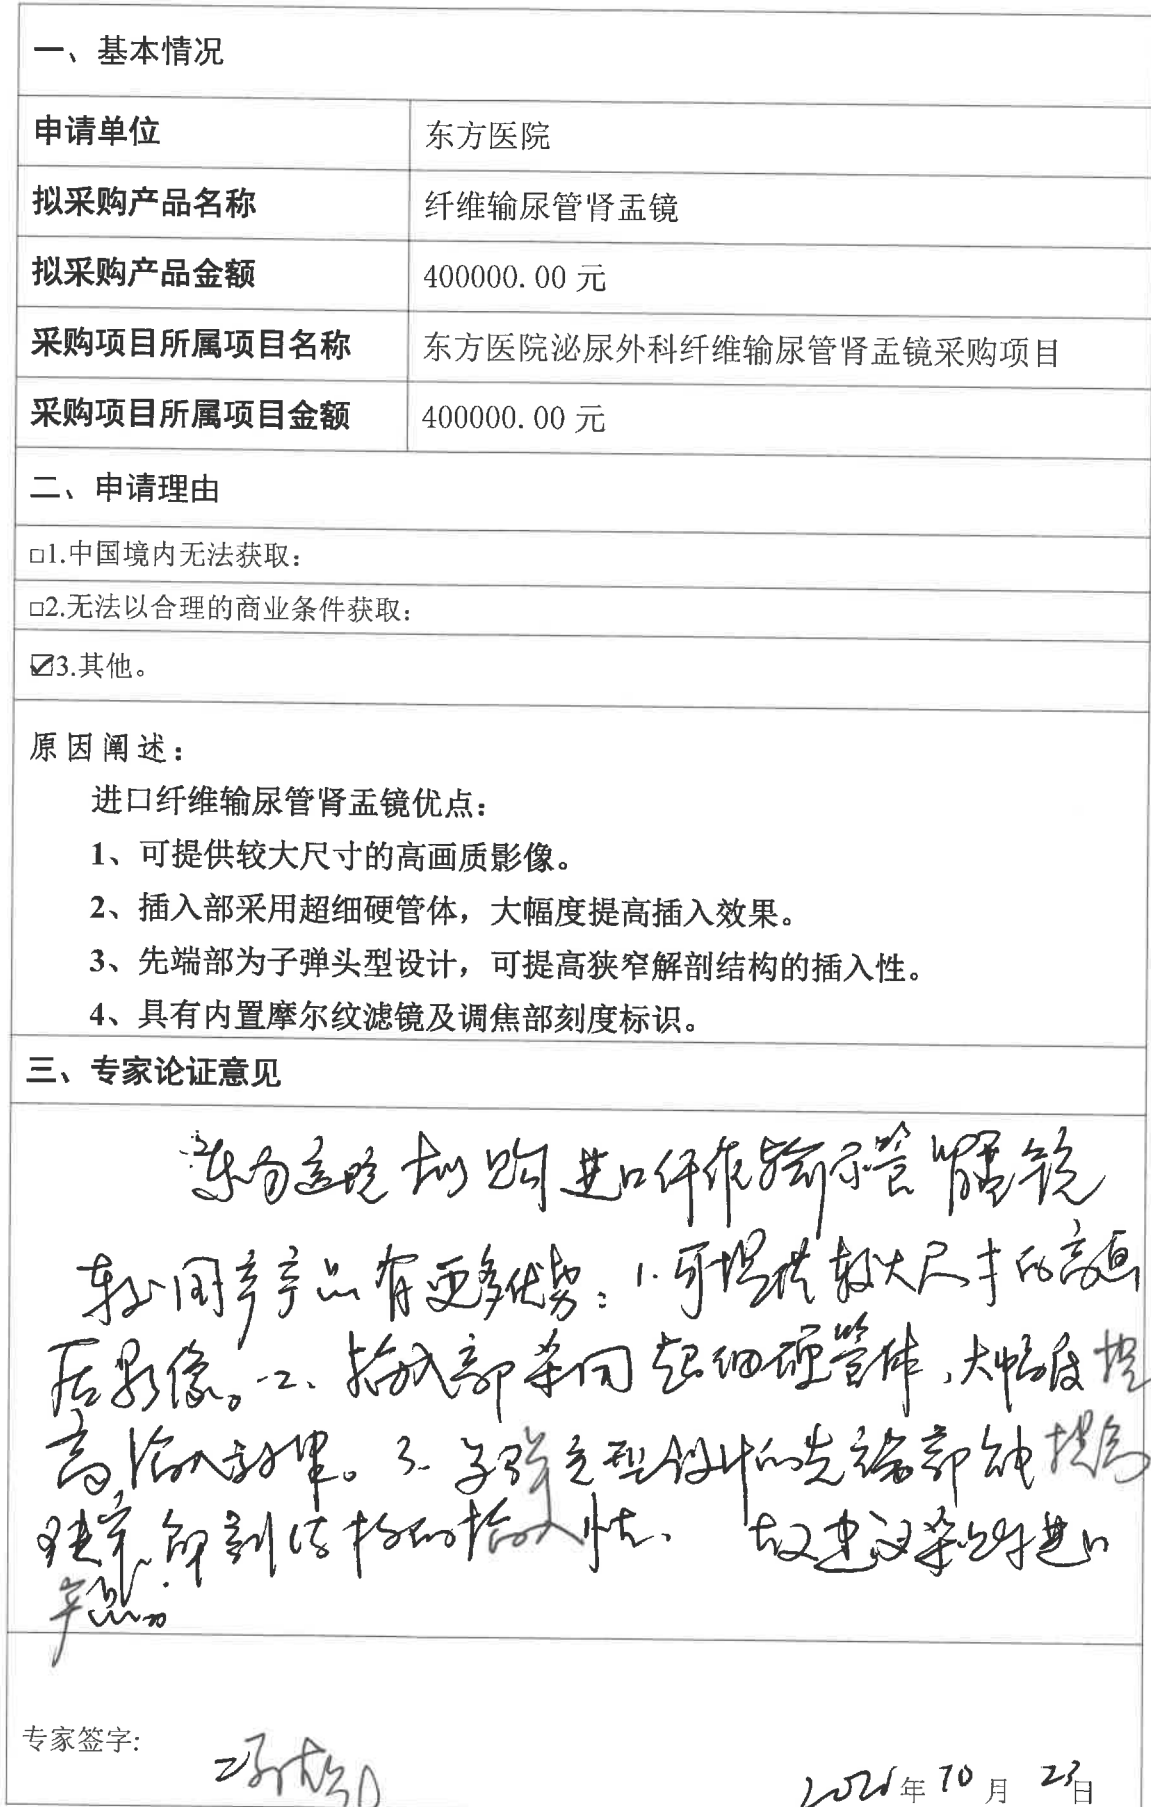 一、基本情况
申请单位 东方医院
拟采购产品名称 纤维输尿管肾盂镜
拟采购产品金额 400000.00 元
采购项目所属项目名称 东方医院泌尿外科纤维输尿管肾盂镜采购项目
采购项目所属项目金额 400000.00 元
二、申请理由
□1.中国境内无法获取：
□2.无法以合理的商业条件获取：
☑3.其他。
原因阐述：
进口纤维输尿管肾盂镜优点：
1、可提供较大尺寸的高画质影像。
2、插入部采用超细硬管体，大幅度提高插入效果。
3、先端部为子弹头型设计，可提高狭窄解剖结构的插入性。
4、具有内置摩尔纹滤镜及调焦部刻度标识。
三、专家论证意见
东方医院拟购进口纤维输尿管肾盂镜
较国产产品有更多优势：1.可提供较大尺寸的高画
质影像。2、插入部采用超细硬管体，大幅度提
高插入效果。3.子弹头型设计的先端部能提高
狭窄解剖结构的插入性、故建议采购进口
产品。
专家签字:
年10月23日